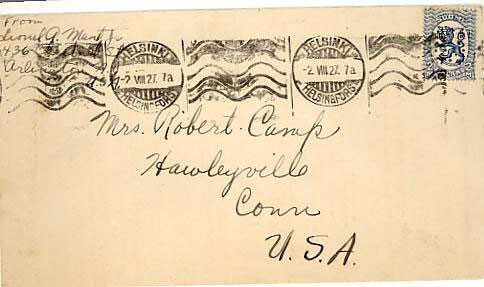 From
Lionel A. Mant Jr
436
Arlin
HELSINKI
-2.VIII.27. 7a
HELSINGFORS
HELSINKI
-2.VIII.27. 7a
HELSINGFORS
Mrs. Robert Camp
Hawleyville
Conn
U.S.A.